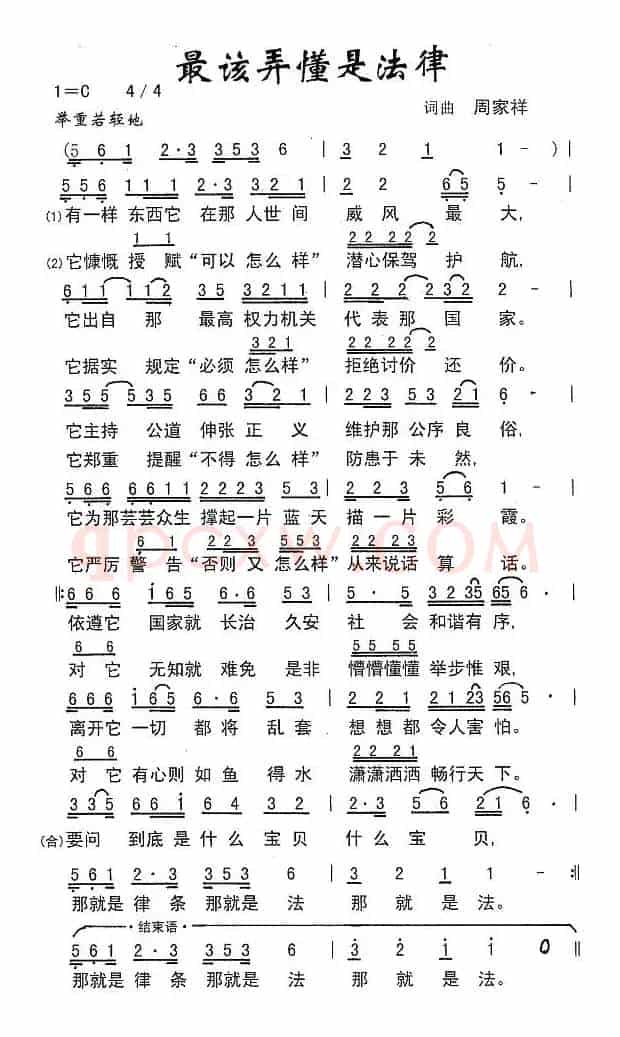 最该弄懂是法律
1=C 4/4
词曲 周家祥
举重若轻地
(5 6 1 2·3 3 5 3 6 | 3 2 1 1 - )|
5 5 6 1 1 1 2 2 3 3 2 1 | 2 2 6 5 5 - |
(1)有一样 东西它 在那 人世间 威风 最大,
1 1 2 2 2 2 2
(2)它慷慨 授赋“可以 怎么样” 潜心保驾 护航,
6 1 1 1 1 2 3 5 3 2 1 1 | 2 2 2 2 3 2 2 - |
它出自 那 最高 权力机关 代表那 国家。
3 2 1 2 2 2 2 2
它据实 规定“必须 怎么样” 拒绝讨价 还价。
3 5 5 5 3 5 6 6 3 2 1 | 2 2 3 5 3 2 1 6 - |
它主持 公道 伸张 正义 维护那 公序良俗,
它郑重 提醒“不得 怎么样” 防患于 未然,
5 6 6 6 6 1 1 2 2 2 3 5 3 | 2 2 3 5 6 1 - |
它为那芸芸众生 撑起一片 蓝天 描一片 彩霞。
6 6 2 2 3 5 5 3
它严厉 警告“否则 又 怎么样”从来说话 算话。
qpcxw.COM
‖:6 6 6 1 6 5 6 6 5 3 | 5 · 5 3 2 3 5 6 5 6 · |
依遵它 国家就 长治 久安 社会 和谐有序,
6 6 5 5 5 5
对它 无知就 难免 是非 懵懵懂懂 举步惟艰,
6 6 6 1 6 5 6·6 5 3 | 2 2 1 2 1 2 3 5 6 5 · |
离开它 一切 都将 乱套 想想都 令人害怕。
6 6 2 2 2 1
对它 有心则 如鱼 得水 潇潇洒洒 畅行天下。
3 3 5 6 6 1 6 4 3 2 | 2·3 5 6 2 1 6 · |
(合)要问 到底是 什么 宝贝 什么 宝贝,
5 6 1 2·3 3 5 3 6 | 3·2 1 1 - :‖
那就是 律条 那就是 法 那就是法。
结束语
5 6 1 2·3 3 5 3 6 | 3·2 1 1 0 ‖
那就是 律条 那就是 法 那就是法。